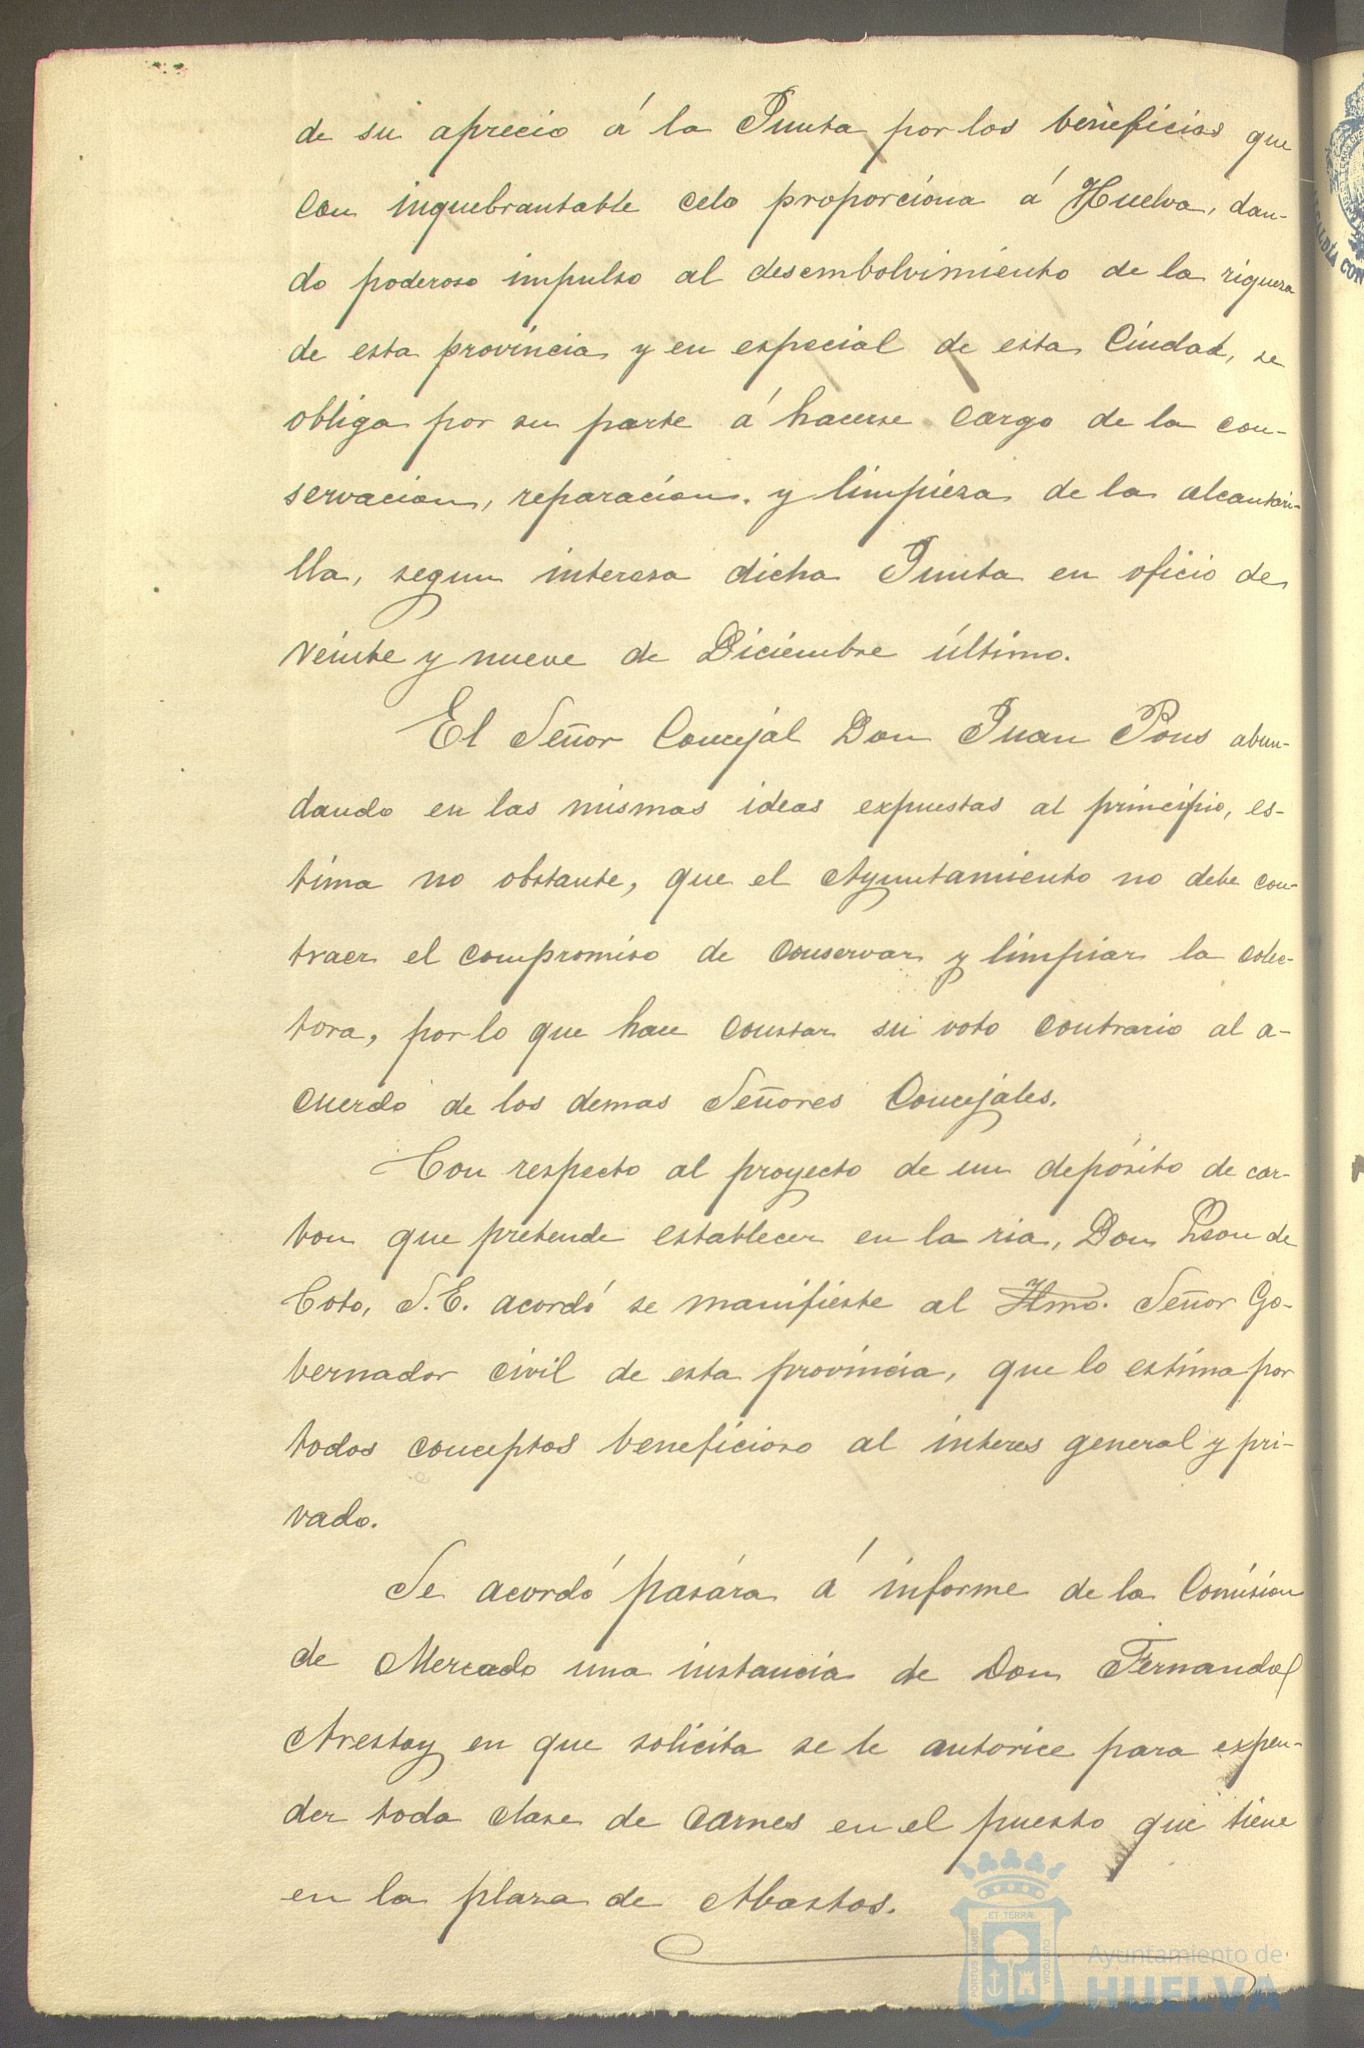 de su aprecio á la Junta por los beneficios que
con inquebrantable celo proporciona á Huelva, dan-
do poderoso impulso al desembolvimiento de la riqueza
de esta provincia y en especial de esta Ciudad, se
obliga por su parte á hacerse cargo de la con-
servacion, reparacion y limpieza de la alcantari-
lla, segun interesa dicha Junta en oficio de
veinte y nueve de Diciembre último.
El Señor Concejal Don Juan Pons abun-
dando en las mismas ideas expuestas al principio, es-
tima no obstante, que el Ayuntamiento no debe con-
traer el compromiso de conservar y limpiar la colec-
tora, por lo que hace constar su voto contrario al a-
cuerdo de los demas Señores Concejales.
Con respecto al proyecto de un depósito de car-
bon que pretende establecer en la ria, Don Leon de
Coto, S.E. acordó se manifieste al Iltmo. Señor Go-
bernador civil de esta provincia, que lo estima por
todos conceptos beneficioso al interes general y pri-
vado.
Se acordó pasára á informe de la Comision
de Mercado una instancia de Don Fernando
Arestoy en que solicita se le autorice para expen-
der toda clase de carnes en el puesto que tiene
en la plaza de Abastos.
Ayuntamiento de
HUELVA